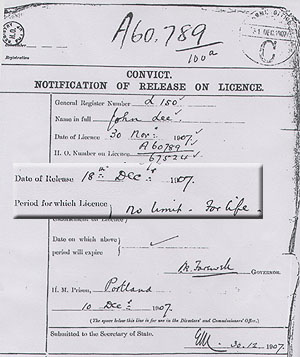 A60,789
100a
Registration
C
CONVICT.
NOTIFICATION OF RELEASE ON LICENCE.
General Register Number L 150
Name in full John Lee
Date of Licence 30 Novr 1907.
H. O. Number on Licence A60789
67524
Date of Release 18th Decbr 1907.
Period for which Licence No limit. For life.
Date on which above
period will expire
GOVERNOR.
H. M. Prison, Portland
10 Decr 1907.
(The space below this line is for use in the Directors' and Commissioners' Office.)
Submitted to the Secretary of State.
30.12.1907.